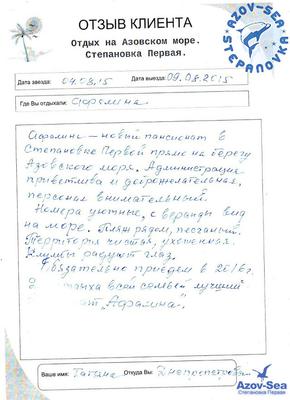 ОТЗЫВ КЛИЕНТА
AZOV-SEA
STEPANOVKA
Отдых на Азовском море.
Степановка Первая.
Дата заезда: 04.08.15 Дата выезда: 09.08.2015
Где Вы отдыхали: Афалина
Афалина – новый пансионат в
Степановке Первой прямо на берегу
Азовского моря. Администрация
приветлива и доброжелательная,
персонал внимательный.
Номера уютные, с веранды вид
на море. Пляж рядом, песчаный.
Территория чистая, ухоженная.
Клумбы радуют глаз.
Обязательно приедем в 2016г.
всей семьей лучший
"Афалина".
Ваше имя: Татьяна Откуда Вы: Днепропетровск
Azov-Sea
Степановка Первая